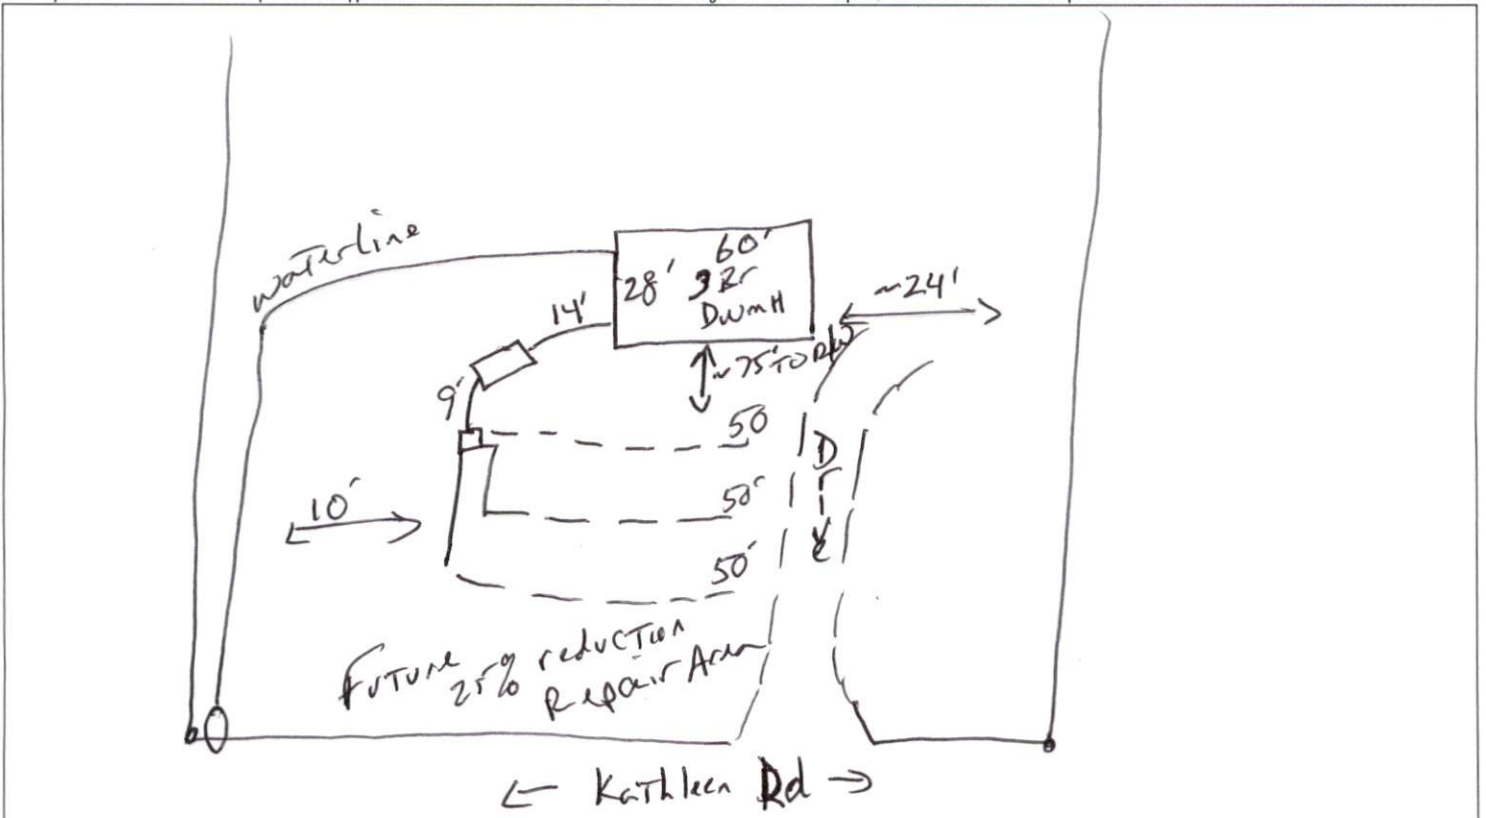 waterline
60'
28' 3 Br
DWMH
~24'
14'
~75' TO R/W
9'
50
Drive
50'
10'
50'
Future
25% reduction
Repair Area
← Kathleen Rd →